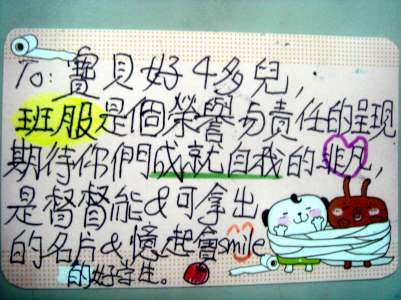 To: 寶貝好4多兒,
班服是個榮譽與責任的呈現
期待你們成就自我的非凡,
是督督能&可拿出
的名片&憶起會smile
的好宝。